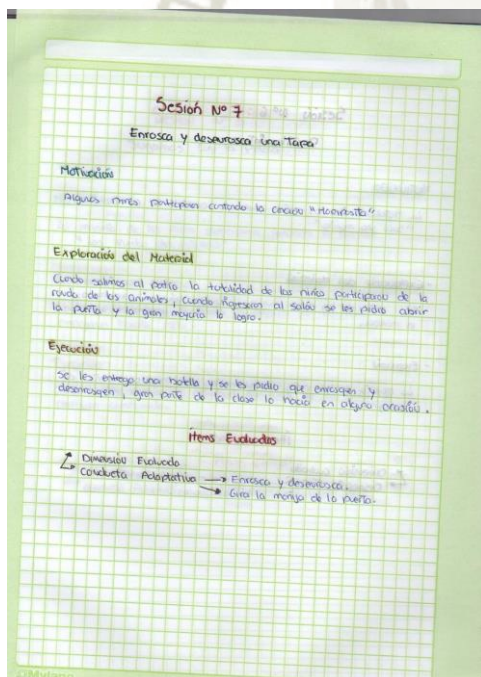 Sesión Nº 7
Enrosca y desenrosca una Tapa
Motivación
Algunos niños participan cantando la canción "
Exploración del Material
Cuando salimos al patio la totalidad de los niños participaron de la
ronda de los animales, cuando regresaron al salón se les pidio abrir
la puerta y la gran mayoria lo logro.
Ejecución
Se les entrego una botella y se les pidio que enrosquen y
desenrosquen, gran parte de la clase lo hacia en alguna ocasión.
Ítems Evaluados
Dimensión Evaluada
Conducta Adaptativa → Enrosca y desenrosca.
→ Gira la manija de la puerta.